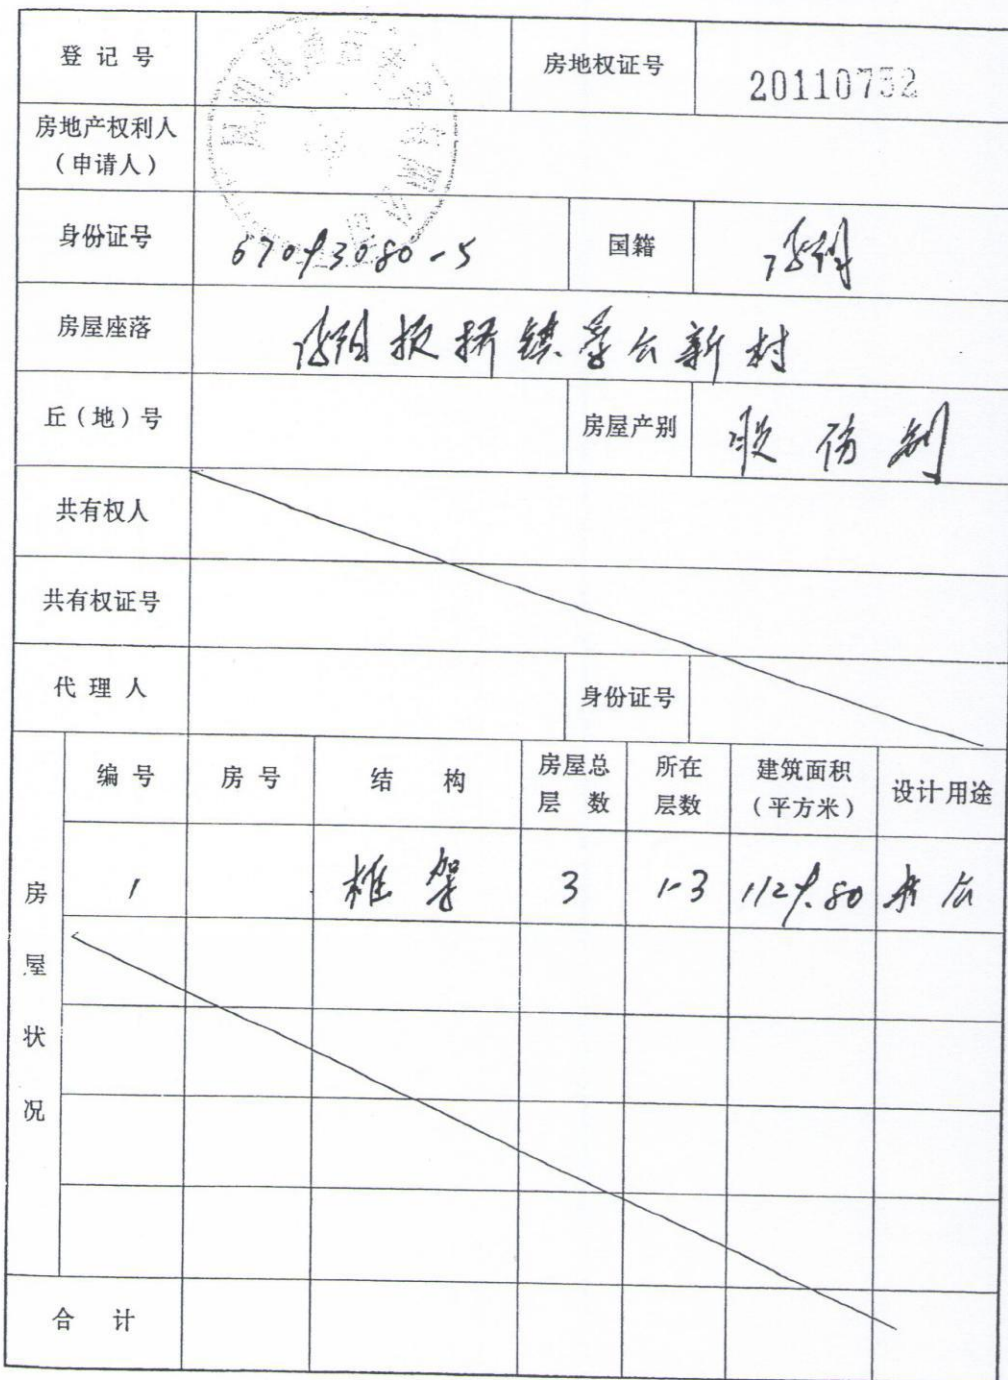 登记号 房地权证号 20110752
房地产权利人
(申请人)
身份证号 67093080-5 国籍
房屋座落 镇 新村
丘(地)号 房屋产别 股份制
共有权人
共有权证号
代理人 身份证号
编号 房号 结构 房屋总层数 所在层数 建筑面积(平方米) 设计用途
房屋状况 1 框架 3 1-3 1129.80 办公
合计